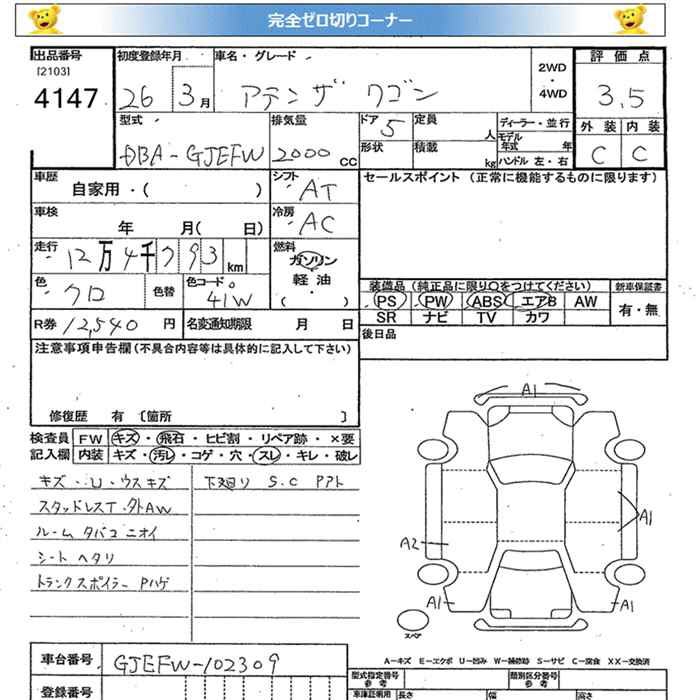 完全ゼロ切りコーナー
出品番号 初度登録年月 車名・グレード 2WD・4WD 評価点
[2103]
4147 26 3月 アテンザ ワゴン 3.5
型式 排気量 ドア 定員 ディーラー・並行 外装 内装
DBA-GJEFW 2000cc 5 人 モデル年式 年 C C
形状 積載 kg ハンドル 左・右
車歴 自家用・( ) シフト AT セールスポイント (正常に機能するものに限ります)
車検 年 月( 日) 冷房 AC
走行 12万4千793km 燃料 ガソリン
軽油
・( )
色 クロ 色替 色コード 41W
装備品(純正品に限り○をつけてください) 新車保証書
PS PW ABS エアB AW 有・無
SR ナビ TV カワ
R券 12,540円 名変通知期限 月 日 後日品
注意事項申告欄(不具合内容等は具体的に記入して下さい)
修復歴 有 〔箇所 〕
検査員 FW キズ・飛石・ヒビ割・リペア跡・×要
記入欄 内装 キズ・汚レ・コゲ・穴・スレ・キレ・破レ
キズ・U・ウスキズ 下廻り S.C Pアト
スタッドレスT・外AW
ルーム タバコ ニオイ
シート ヘタリ
トランクスポイラー Pハゲ
A1
A1
A2
A1 A1
スペア
A-キズ E-エクボ U-凹み W-補修跡 S-サビ C-腐食 XX-交換済
車台番号 GJEFW-102309
型式指定番号 参考 類別区分番号 参考
登録番号 車庫証明用 長さ 幅 高さ